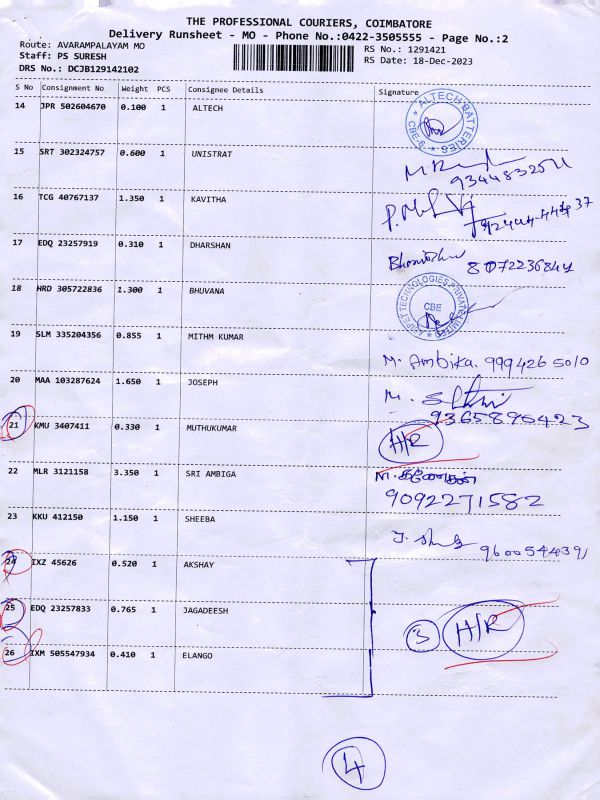 THE PROFESSIONAL COURIERS, COIMBATORE
Delivery Runsheet - MO - Phone No.:0422-3505555 - Page No.:2
Route: AVARAMPALAYAM MO
RS No.: 1291421
Staff: PS SURESH
RS Date: 18-Dec-2023
DRS No.: DCJB129142102
S No Consignment No Weight PCS Consignee Details Signature
14 JPR 502604670 0.100 1 ALTECH
ALTECH BATTERIES CBE-6
15 SRT 302324757 0.600 1 UNISTRAT
9344832511
16 TCG 40767137 1.350 1 KAVITHA
17 EDQ 23257919 0.310 1 DHARSHAN
8072236841
18 HRD 305722836 1.300 1 BHUVANA
TECHNOLOGIES PRIVATE LIMITED CBE
19 SLM 335204356 0.855 1 MITHM KUMAR
M. Ambika. 9994265010
20 MAA 103287624 1.650 1 JOSEPH
M.
9365890423
21 KMU 3407411 0.330 1 MUTHUKUMAR H/R
22 MLR 3121158 3.350 1 SRI AMBIGA
M. கணேசன்
9092271582
23 KKU 412150 1.150 1 SHEEBA
9600544391
24 IXZ 45626 0.520 1 AKSHAY
25 EDQ 23257833 0.765 1 JAGADEESH
3 H/R
26 IXM 505547934 0.410 1 ELANGO
4